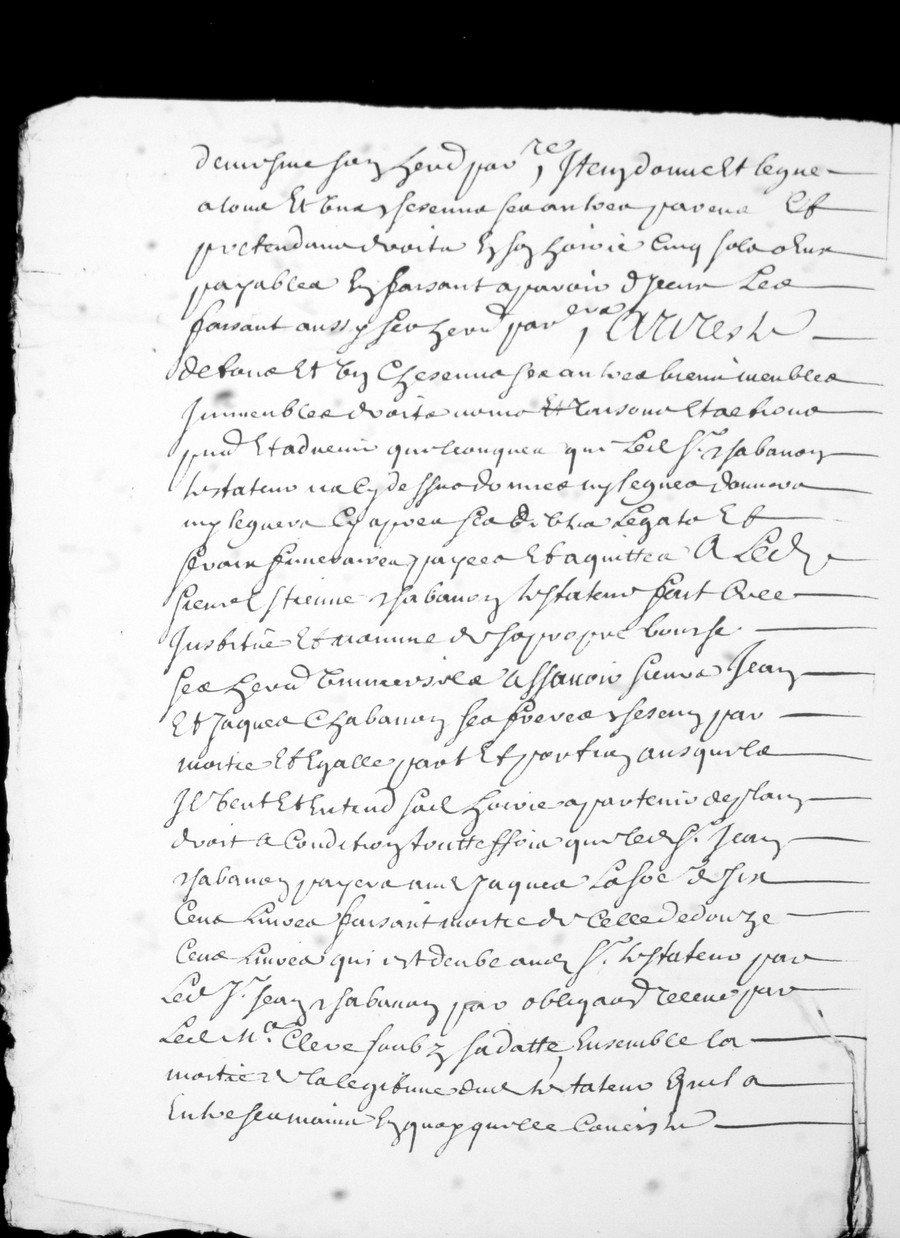 demeure son hered par re, Item donne et legue
a tous et ungs chescungs ses autres parens et
pretendans droits en son hoirie cinq sols a eux
payables en faisant aparoir d'iceux les
faisant aussy ses hered par eres, Au reste
de tous et ung chescungs ses autres biens meubles
Immeubles droits noms et raisons et actions
pnts et advenir quelconques que led Sr. Chabanon
testateur na cy dessus donnes ny legues donnera
ny leguera cy apres ses debtes legats et
frais funeraires payees et aquittes led
sieur Estienne Chabanon testateur fait cree
Institue et nomme de sa propre bouche
ses hered universels assavoir sieurs Jean
Et Jaques Chabanon ses freres chescun par
moitie et egalle part et portion ausquels
Il veut et entend sad hoirie apartenir de plain
droit a condition touttefois que led Sr. Jean
Chabanon payera aud Jaques la soe de six
cens livres faisant moitie de celle de douze
cens livres qui est deube aud Sr. testateur par
led Sr. Jean Chabanon par obligaon receue par
led Me. Cleve soubz sa datte, Ensemble la
moitie de la legitime dud testateur quil a
Entre ses mains en quoy quelle consiste